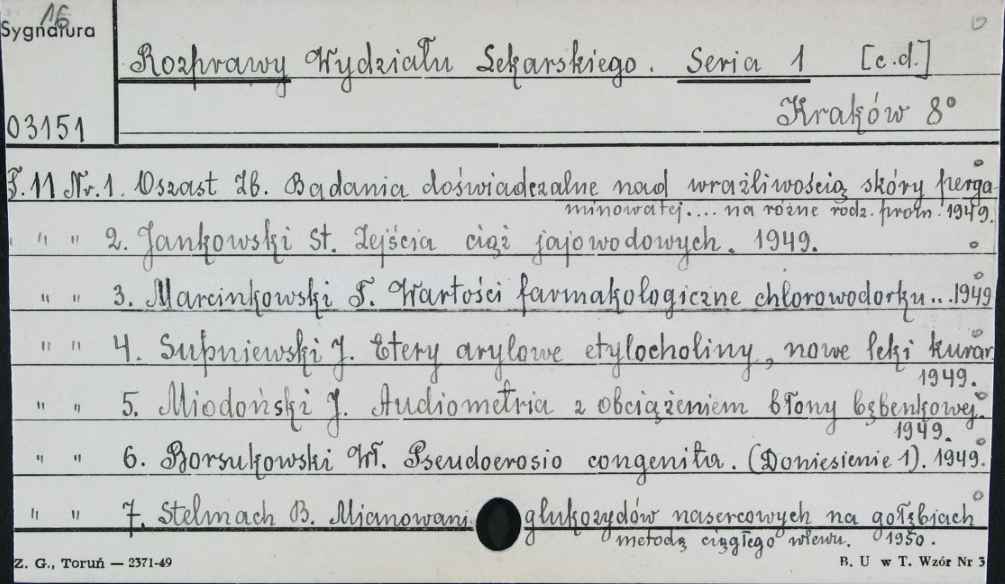 16
Sygnatura
Rozprawy Wydziału Lekarskiego. Seria 1 [c.d.]
03151
Kraków 8°
T. 11 Nr. 1. Oszast Zb. Badania doświadczalne nad wrażliwością skóry perga
minowatej.... na różne rodz. prom. 1949.
" " 2. Jankowski St. Zejścia ciąż jajowodowych. 1949.
" " 3. Marcinkowski T. Wartości farmakologiczne chlorowodorku... 1949
" " 4. Supniewski J. Etery arylowe etylocholiny, nowe leki kurar.
1949.
" " 5. Miodoński J. Audiometria z obciążeniem błony bębenkowej.
1949.
" " 6. Borsukowski Wł. Pseudoerosio congenita. (Doniesienie 1). 1949.
" " 7. Stelmach B. Mianowani glukozydów nasercowych na gołębiach
metodą ciągłego wlewu. 1950.
Z. G., Toruń — 2371-49
B. U w T. Wzór Nr 3